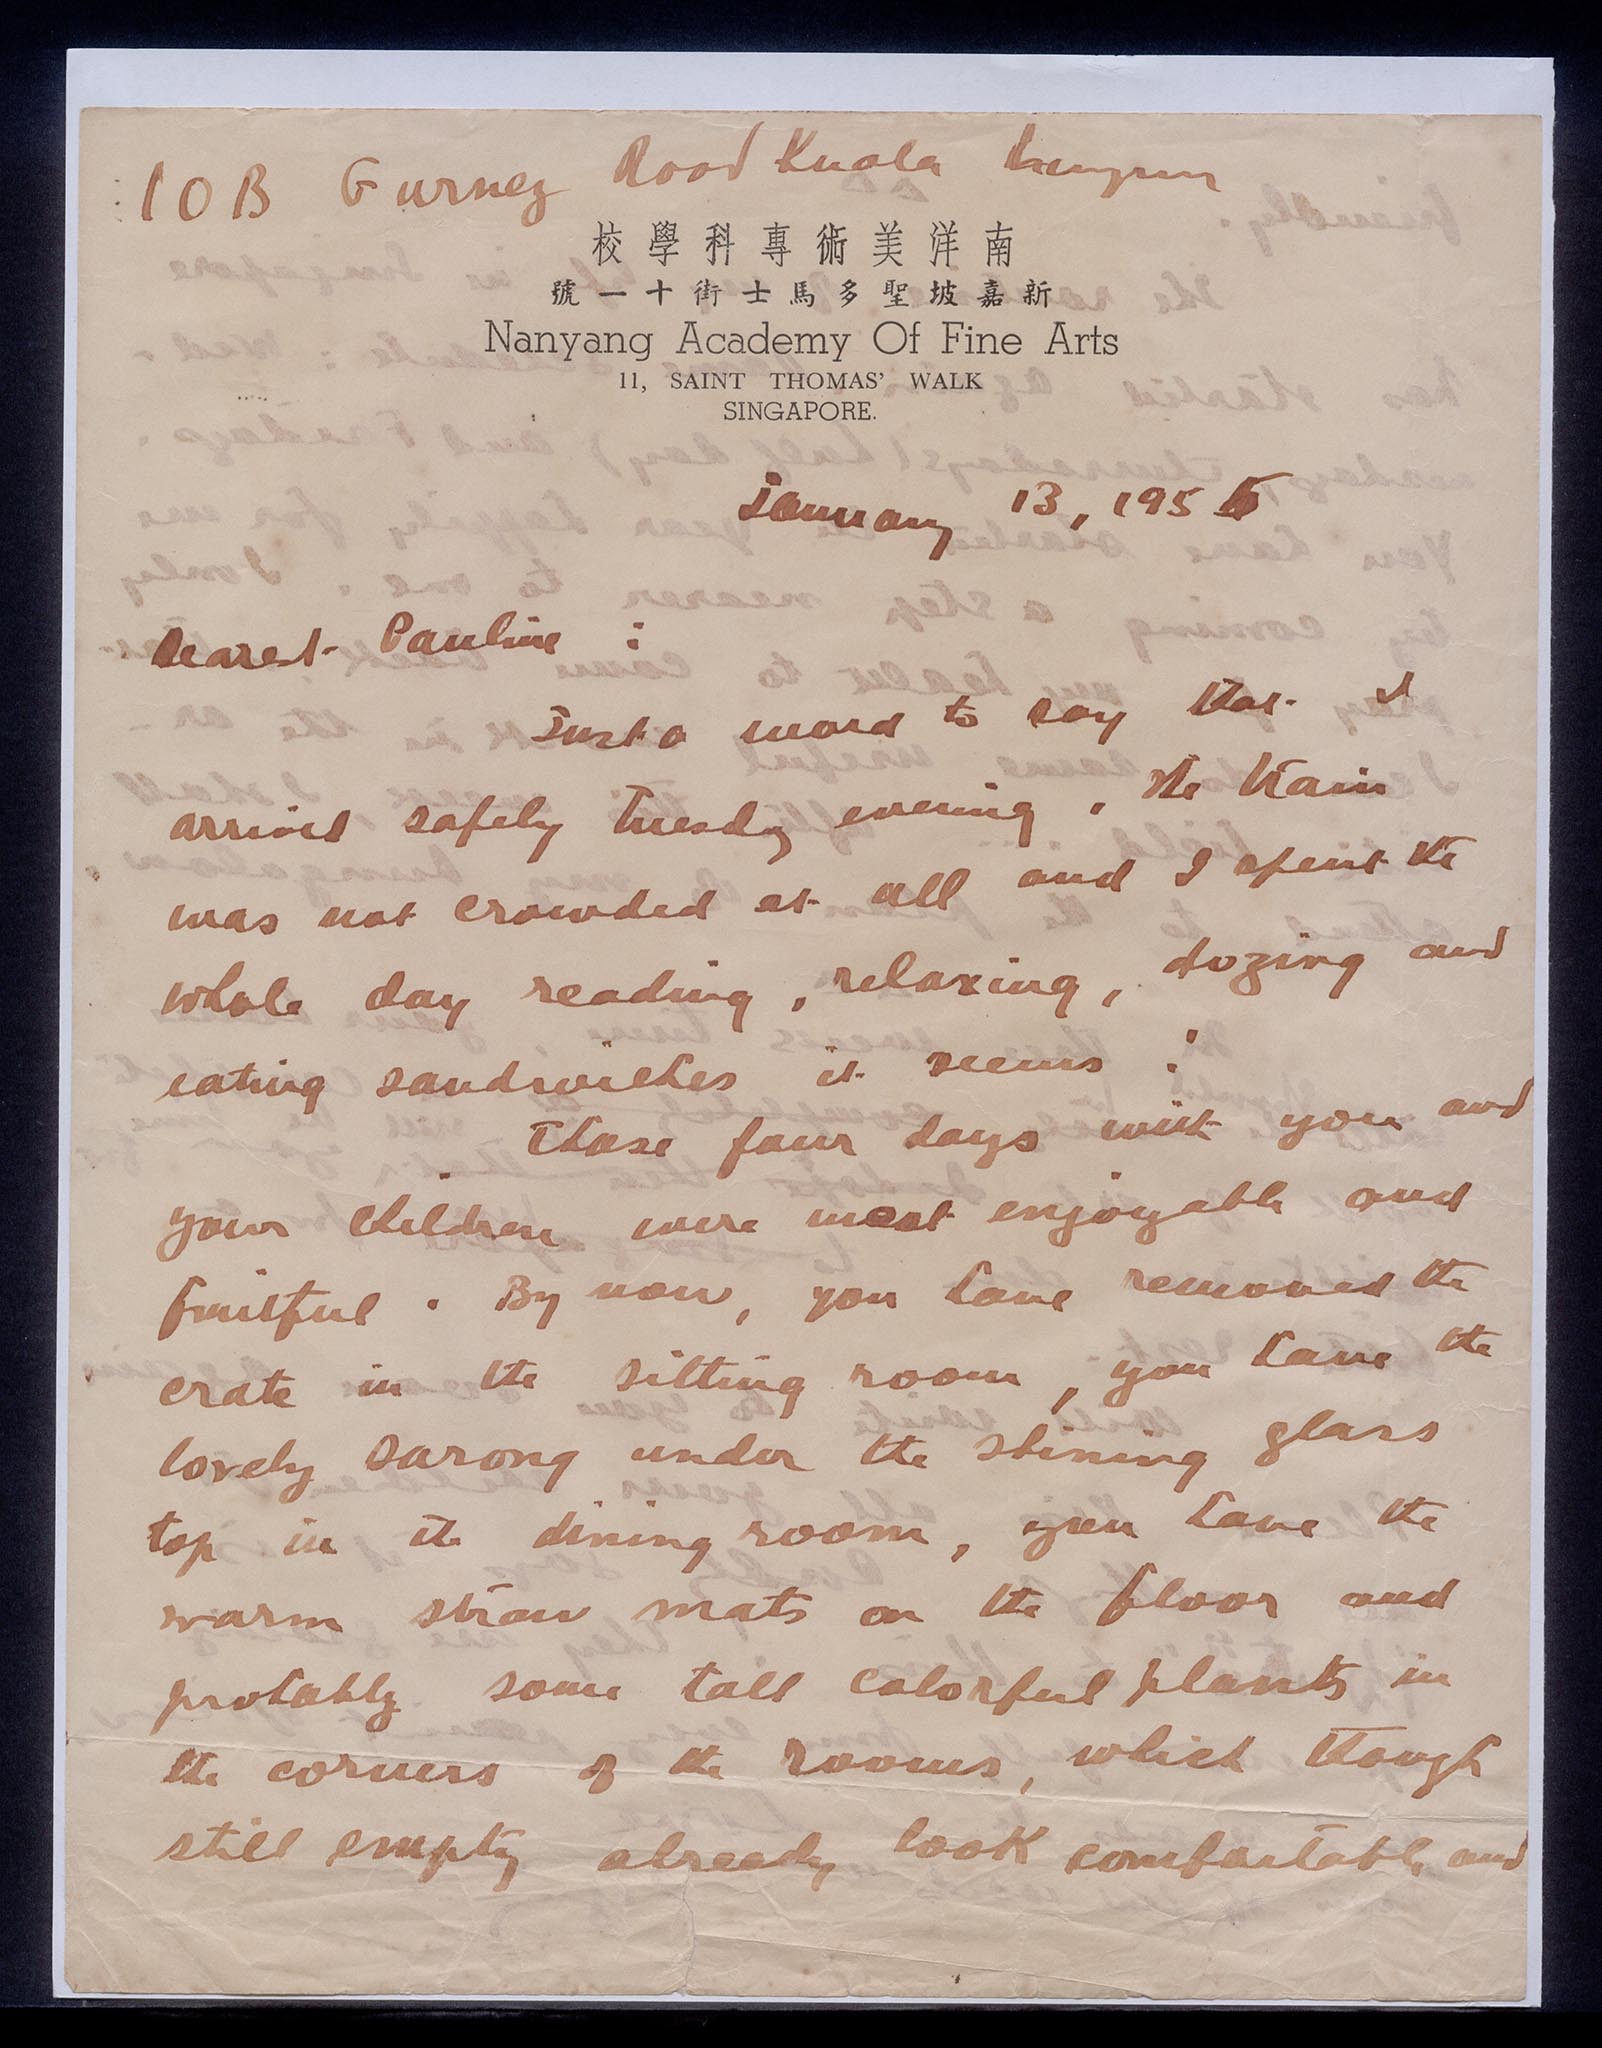 10B Gurney Road Kuala Lumpur
校學科專術美洋南
號一十街士馬多聖坡嘉新
Nanyang Academy Of Fine Arts
11, SAINT THOMAS' WALK
SINGAPORE.
January 13, 1955
Dearest Pauline :
Just a word to say that I
arrived safely Tuesday evening. The train
was not crowded at all and I spent the
whole day reading, relaxing, dozing and
eating sandwiches it seems !
Those four days with you and
your children were most enjoyable and
fruitful. By now, you have removed the
crate in the sitting room, you have the
lovely sarong under the shining glass
top in the dining room, you have the
warm straw mats on the floor and
probably some tall colorful plants in
the corners of the rooms, which though
still empty already look comfortable and